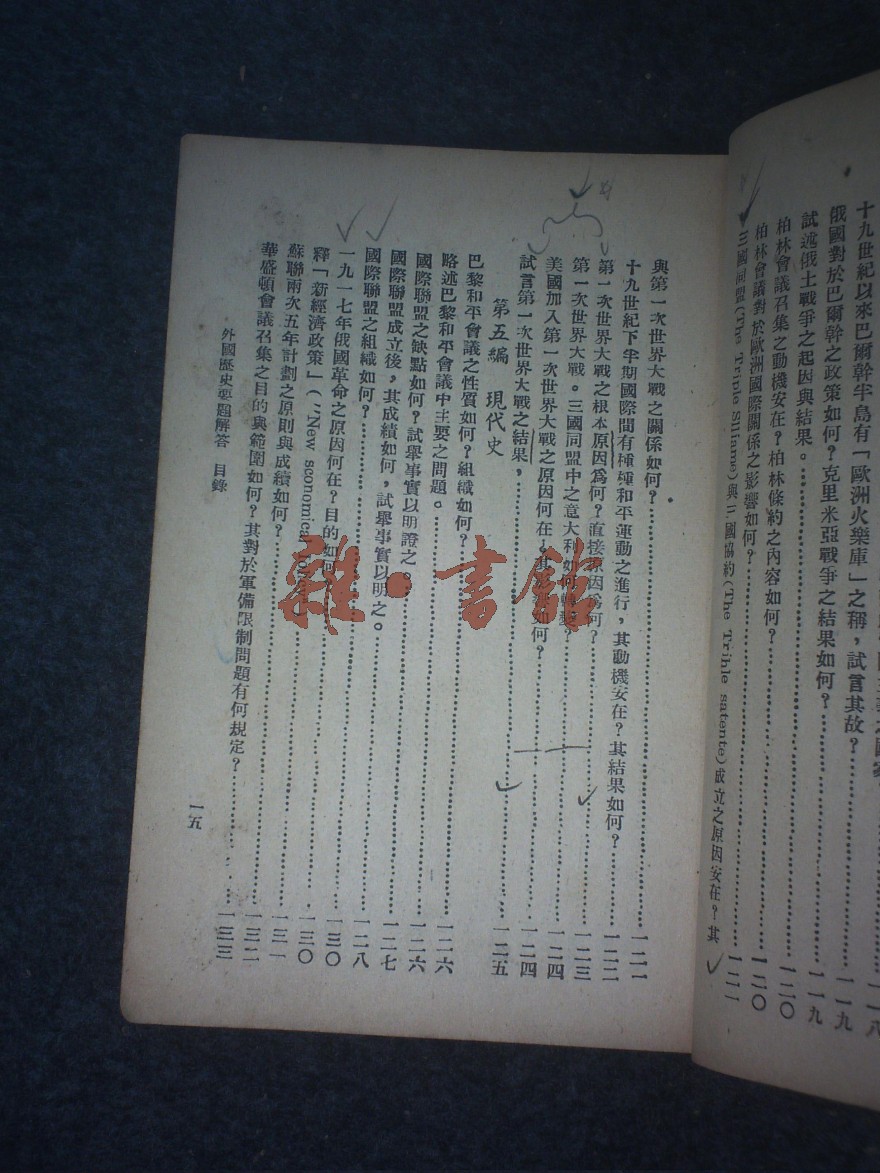 十九世紀以來巴爾幹半島有「歐洲火藥庫」之稱，試言其故？……一一八
俄國對於巴爾幹之政策如何？克里米亞戰爭之結果如何？……一一九
試述俄土戰爭之起因與結果。……一一九
柏林會議召集之動機安在？柏林條約之內容如何？……一二〇
柏林會議對於歐洲國際關係之影響如何？……一二〇
三國同盟(The Triple Slliame)與三國協約(The Trihle satente)成立之原因安在？其
與第一次世界大戰之關係如何？……一二一
十九世紀下半期國際間有種種和平運動之進行，其動機安在？其結果如何？……一二二
第一次世界大戰之根本原因爲何？直接原因爲何？……一二三
第一次世界大戰。三國同盟中之意大利如何轉變？……一二四
美國加入第一次世界大戰之原因何在？其影響如何？……一二四
試言第一次世界大戰之結果，……一二五
第五編 現代史
巴黎和平會議之性質如何？組織如何？……一二六
略述巴黎和平會議中主要之問題。……一二六
國際聯盟之缺點如何？試舉事實以明證之。……一二七
國際聯盟成立後，其成績如何，試舉事實以明之。……一二八
國際聯盟之組織如何？……一三〇
一九一七年俄國革命之原因何在？目的如何？……一三〇
釋「新經濟政策」("New sconomical
蘇聯兩次五年計劃之原則與成績如何？……一三二
華盛頓會議召集之目的與範圍如何？其對於軍備限制問題有何規定？……一三三
外國歷史要題解答 目錄
一五
雜·書館